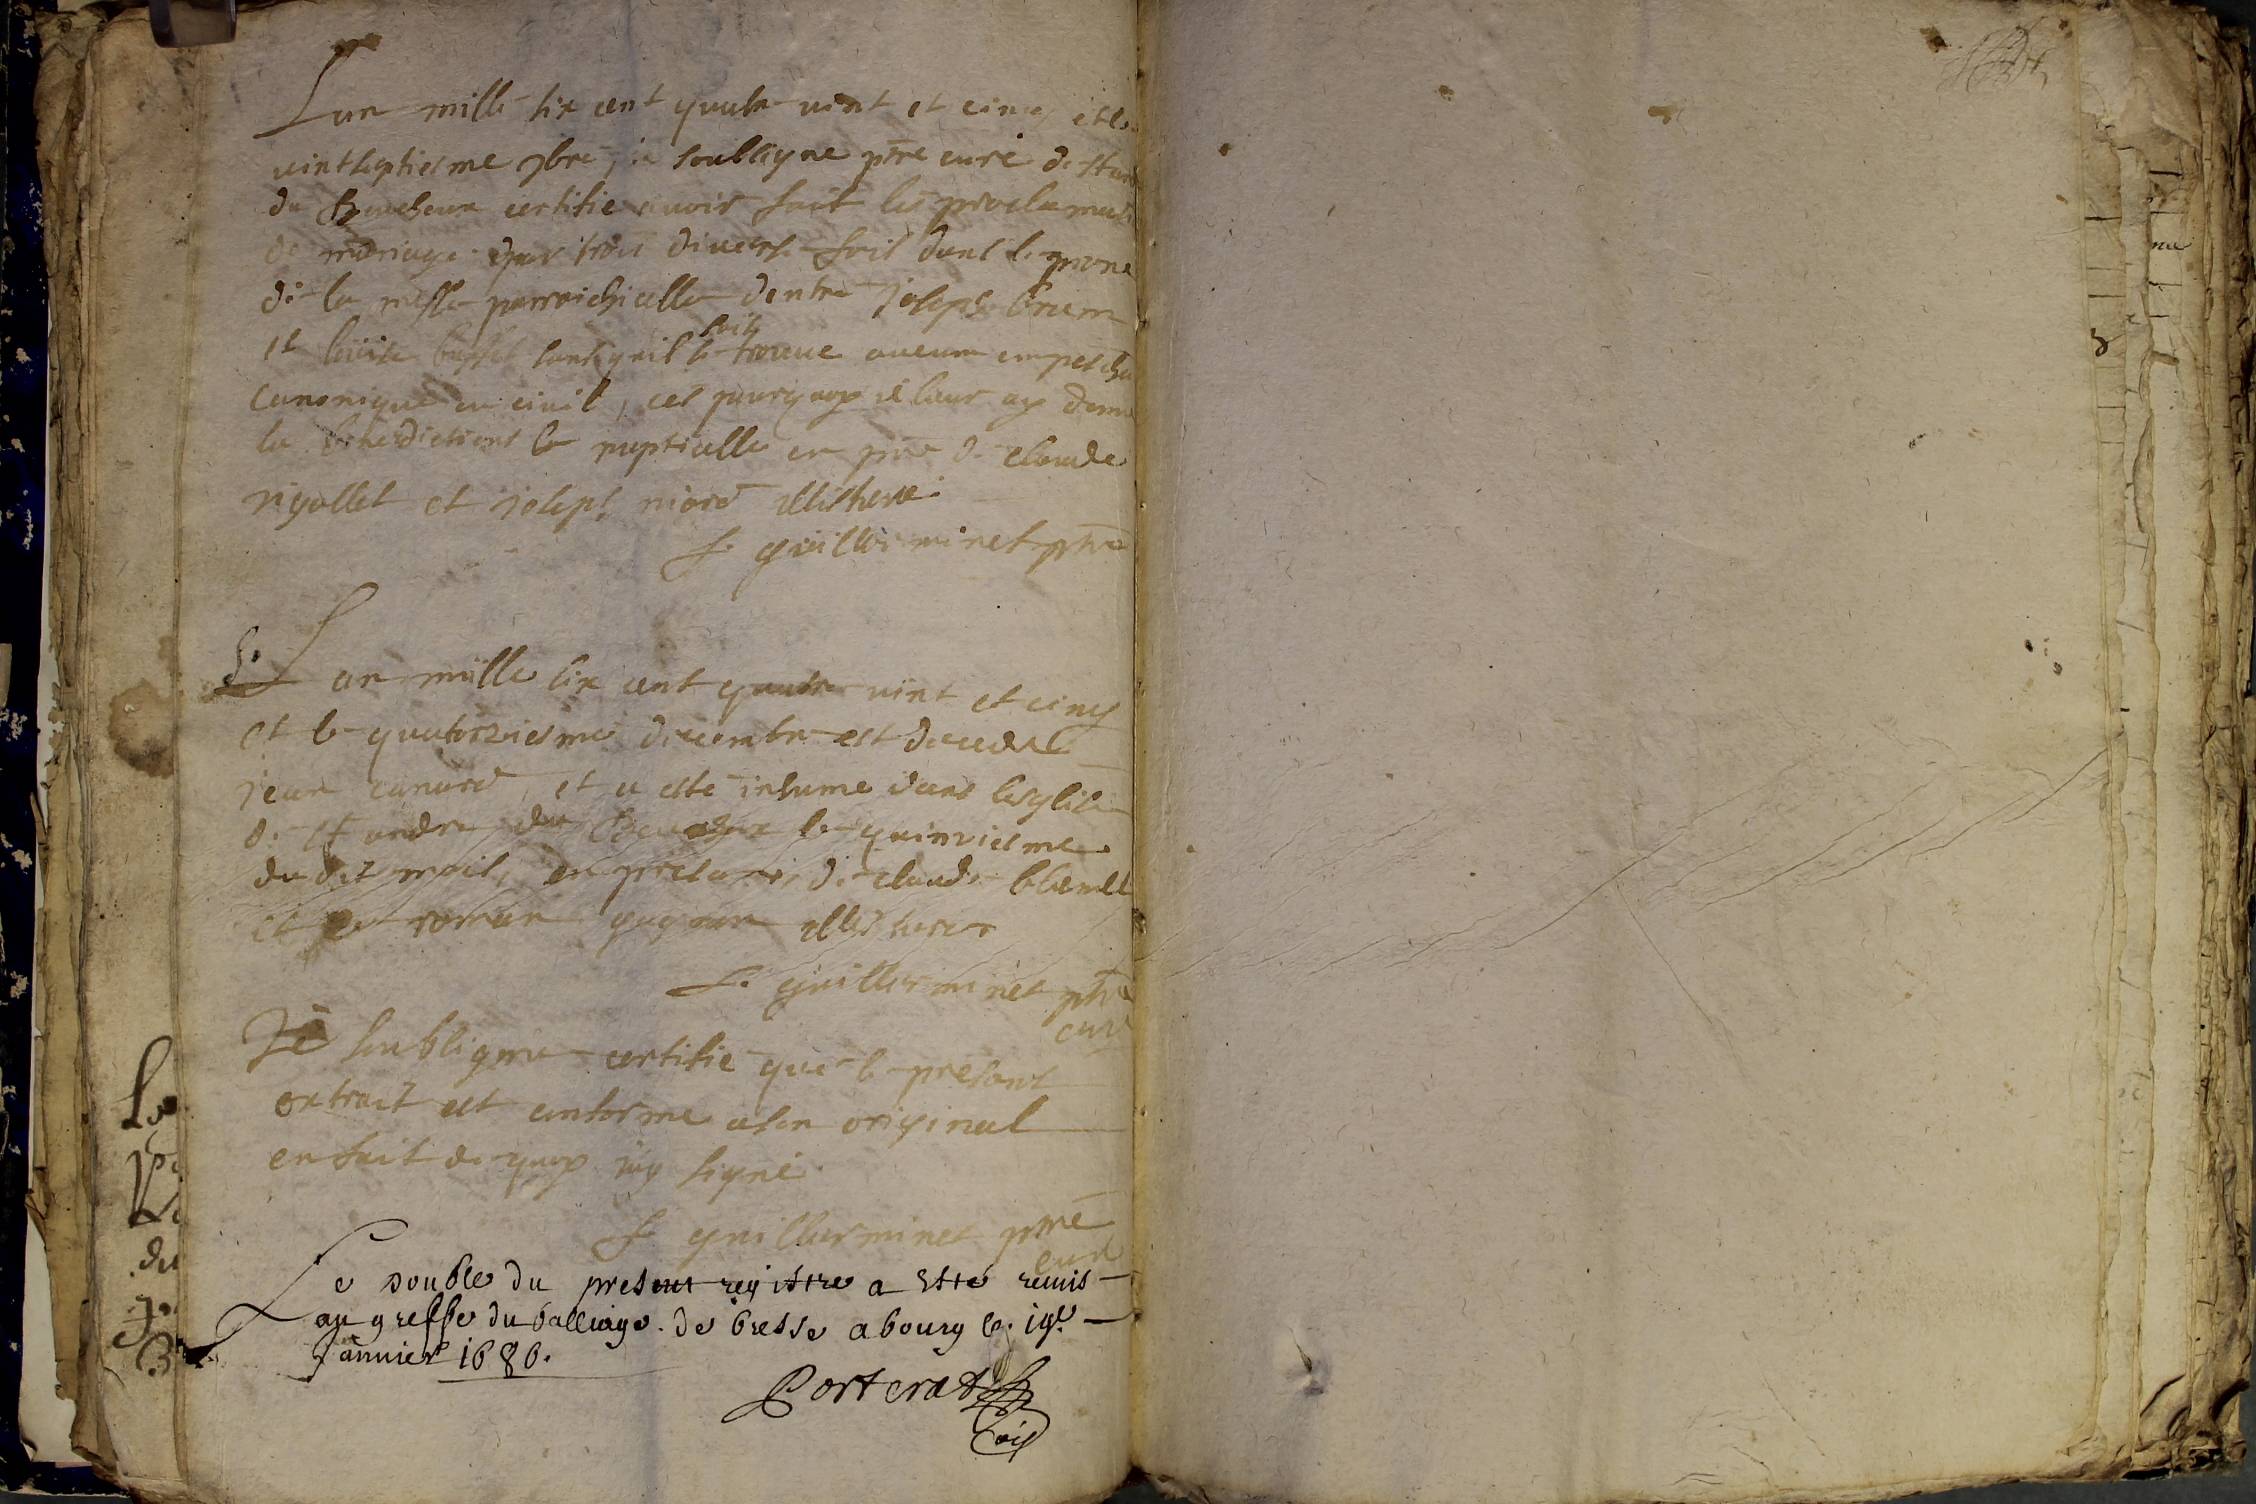 Lan mille six cent quatre vint et cinq et le
vintseptiesme 9bre, ie soubsigne ptre curé de st an
du Bouchoux certifie avoir fait les proclamati
de mariage par trois diverse fois dans le prone
de la messe parroichielle dentre Joseph brun
et loüise buffet sans quil se soit trouve aucun empesche
canonique ou civil, ces pourquoy ie leur ay donne
la benedictions la nuptialle en pnce de claude
rigollet et Joseph niord illisteré
f. guillerminet ptre
Lan mille six cent quatre vint et cinq
et le quatorziesme decembre est decede
jean canard, et a esté inhume dans lesglise
de st andre du Bouchoux le quinziesme
du dit mois, en presence de claude
et roman gagnon illisteres
f. guillerminet ptre
curé
Je soubsigne certifie que le presant
extrait est conforme a son original
en fait de quoy iay signé
f guillerminet ptre
curé
Le Double du present registre a Esté remis
au greffe du balliage de bresse a bourg le 19e
Janvier 1686.
Porterat